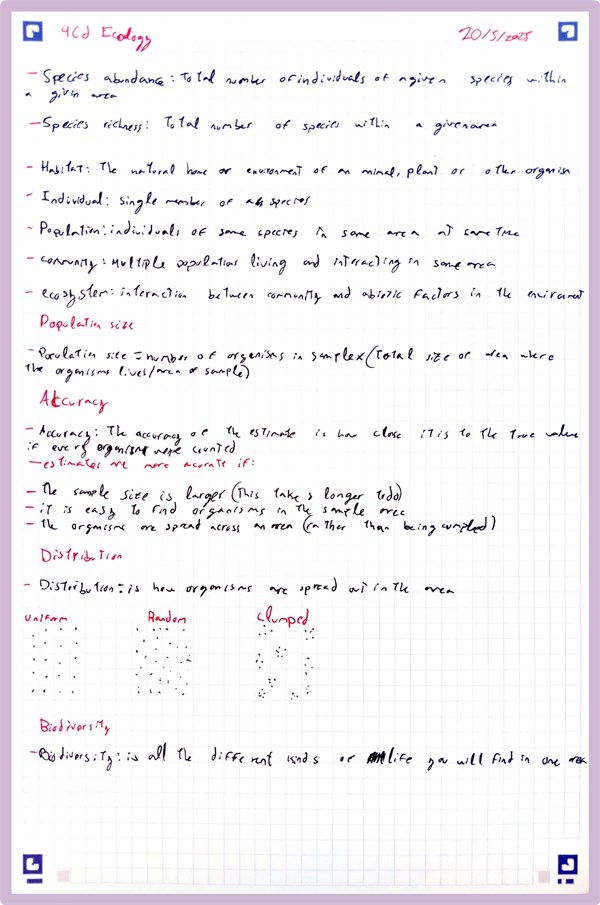 9Cd Ecology 20/5/2025
- Species abundance: Total number of individuals of a given species within
a givin area
- Species richness: Total number of species within a given area
- Habitat: The natural home or environment of an animal, plant or other organism
- Individual: Single member of a species
- Population: individuals of same species in same area at same time
- community: Multiple populations living and interacting in same area
- ecosystem: interaction between community and abiotic factors in the enviroment
Population size
- Population size = number of organisms in sample x (Total size of area where
the organisms lives/area of sample)
Accuracy
- Accuracy: The accuracy of the estimate is how close it is to the true value
if every organism were counted
- estimates are more accurate if:
- The sample size is larger (This takes longer to do)
- it is easy to find organisms in the sample area
- the organisms are spread across an area (rather than being clumped)
Distribution
- Distribution: is how organisms are spread out in the area
Uniform Random Clumped
Biodiversity
- Biodiversity: is all the different kinds of life you will find in one area